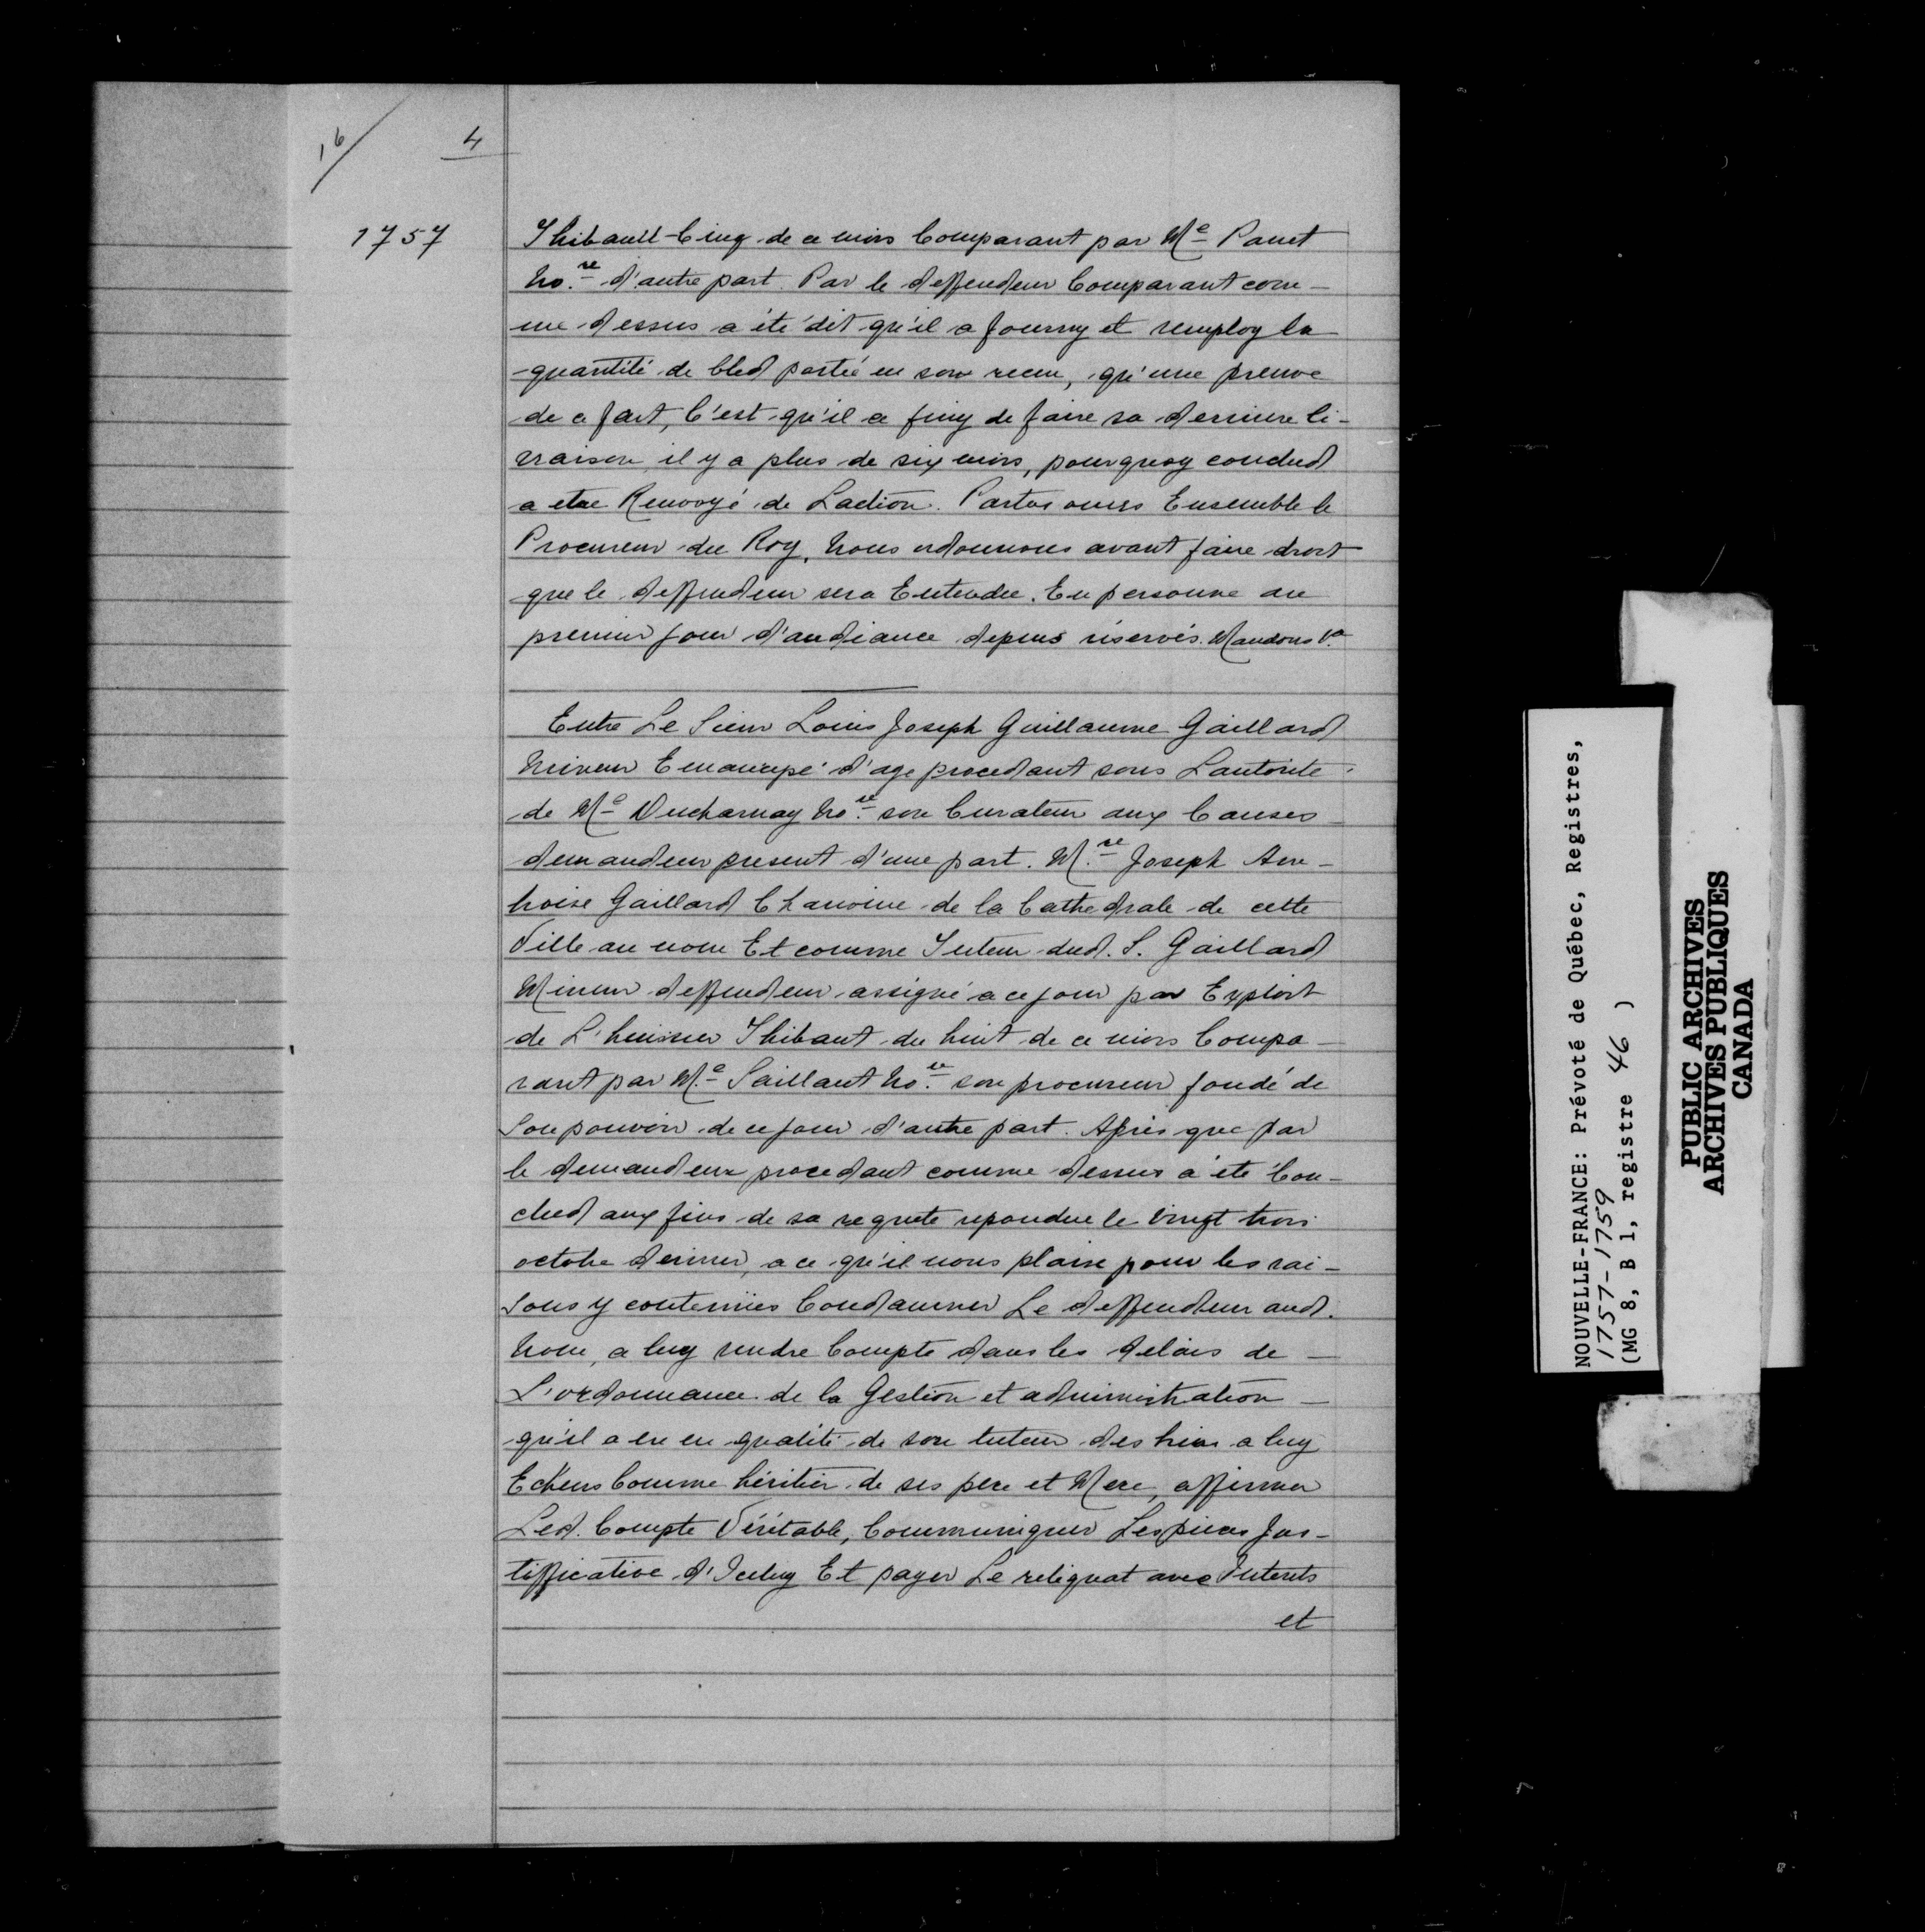 16/ 4
1757
Thibault Cinq de ce mois Comparant par Me Panet
No.re d'autre part. Par le deffendeur Comparant com-
me dessus a été dit qu'il a fourny et employ la
quantité de bled portée en son receu, qu'une preuve
de ce fait, C'est qu'il a finy de faire sa derniere li-
vraison il y a plus de six mois, pourquoy conclud
a etre Renvoyé de Laction. Parties ouies Ensemble le
Procureur du Roy, Nous ordonnons avant faire droit
que le deffendeur sera Entendu En personne au
premier jour d'audiance depens réservés. Mandons &a
Entre Le Sieur Louis Joseph Guillaume Gaillard
Mineur Emancipé d'age procedant sous Lautorite
de Me Duchamay No.re son Curateur aux Causes
demandeur present d'une part. M.re Joseph Am-
broise Gaillard Chanoine de la Cathedrale de cette
Ville au nom Et comme Tuteur dud. S. Gaillard
Mineur deffendeur assigné a ce jour par Exploit
de L'huissier Thibaut du huit de ce mois Compa-
rant par Me Saillant No.re son procureur fondé de
Son pouvoir de ce jour d'autre part. Après que par
le demandeur procedant comme dessus a été Con-
clud aux fins de sa requete repondue le Vingt trois
octobre dernier, a ce qu'il nous plaise pour les rai-
sons y contenües Condamner Le deffendeur aud.
Nom, a luy rendre Compte dans les delais de
L'ordonnance de la Gestion et administration
qu'il a eu en qualité de son tuteur des biens a luy
Echeus Comme héritier de ses pere et Mere, affirmer
Led. Compte Véritable, Communiquer Les pieces Jus-
tifficative d'Iceluy Et payer Le reliquat avec Interets
et
NOUVELLE-FRANCE: Prévoté de Québec, Registres,
1757-1759
(MG 8, B 1, registre 46 )
PUBLIC ARCHIVES
ARCHIVES PUBLIQUES
CANADA